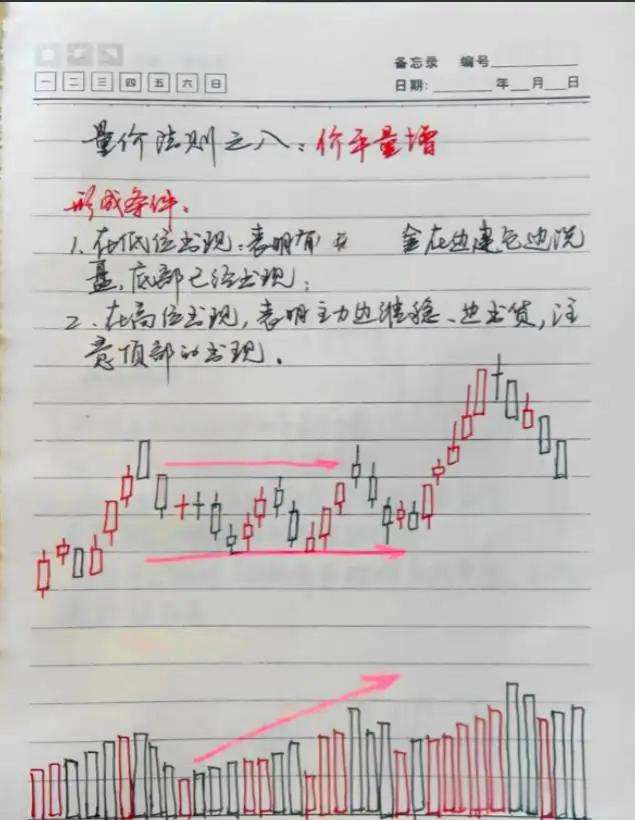 备忘录 编号
一 二 三 四 五 六 日
日期: 年 月 日
量价法则之八：价平量增
形成条件：
1、在低位出现：表明有 金在边建仓边洗
盘，底部已经出现；
2、在高位出现，表明主力边维稳、边出货，注
意顶部的出现。